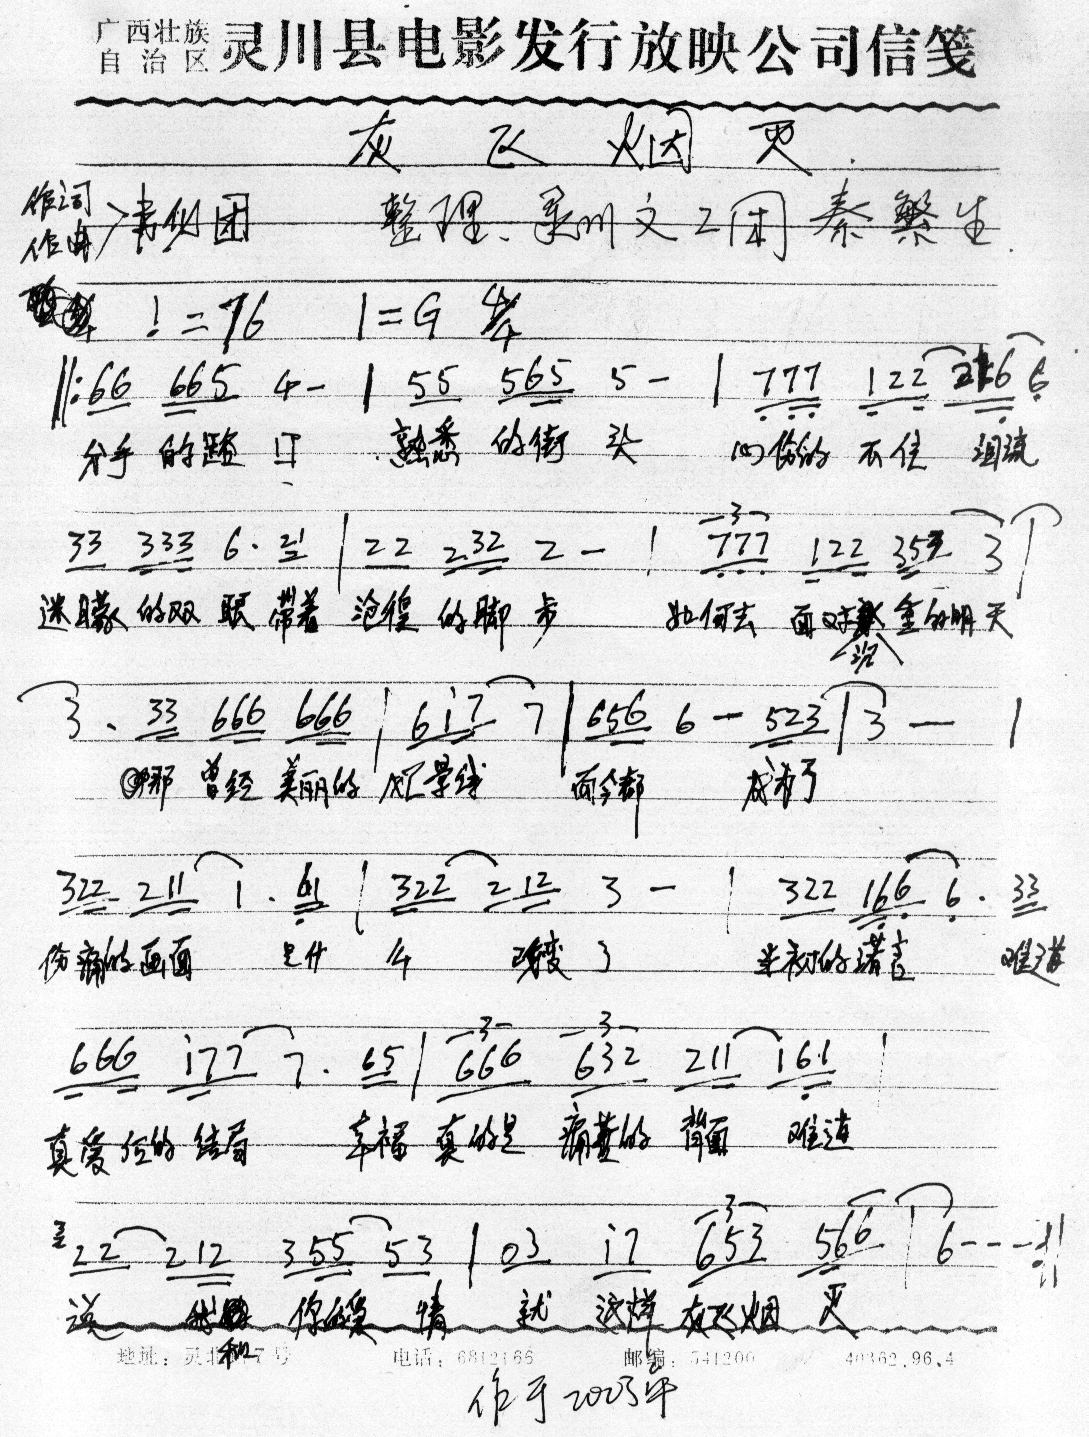 广西壮族自治区 灵川县电影发行放映公司信笺
灰飞烟灭
作词
作曲 团 整理、 州文工团 秦繁生
♩=76 1=G 4/4
‖: 66 665 4 - | 55 565 5 - | 777 122 6 6
分手的路口 熟悉的街头 心伤的 不住 泪流
33 333 6· 21 | 22 232 2 - | 777 122 35 3
迷朦的双眼 带着 沧徨的脚步 如何去 面对 沉重的明天
3 · 33 666 666 | 6i7 7 | 656 6 - 523 | 3 - |
那 曾经 美丽的 风景线 而今都 成为了
322 211 1 · 61 | 322 212 3 - | 322 166 6 · 33
伤痛的画面 是什么 改变了 当初的诺言 难道
666 i77 7 · 65 | 666 632 211 161 |
真爱 的 结局 幸福 真的是 痛苦的 背面 难道
322 212 355 53 | 03 i7 653 566 | 6 - - - :‖
说 我和 你的爱 情 就 这样 灰飞烟 灭
地址：灵北 7号 电话：6812166 邮编：541200 40362.96.4
作于2003年